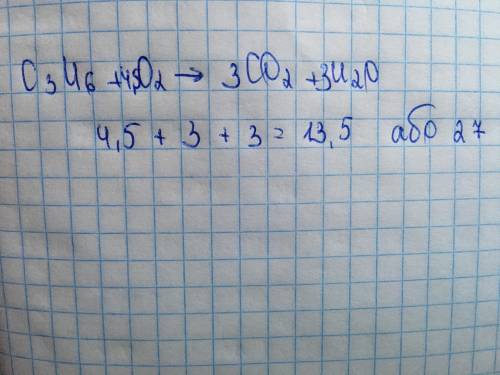 C₃H₆ + 4,5O₂ → 3CO₂ + 3H₂O
4,5 + 3 + 3 = 13,5 або 27